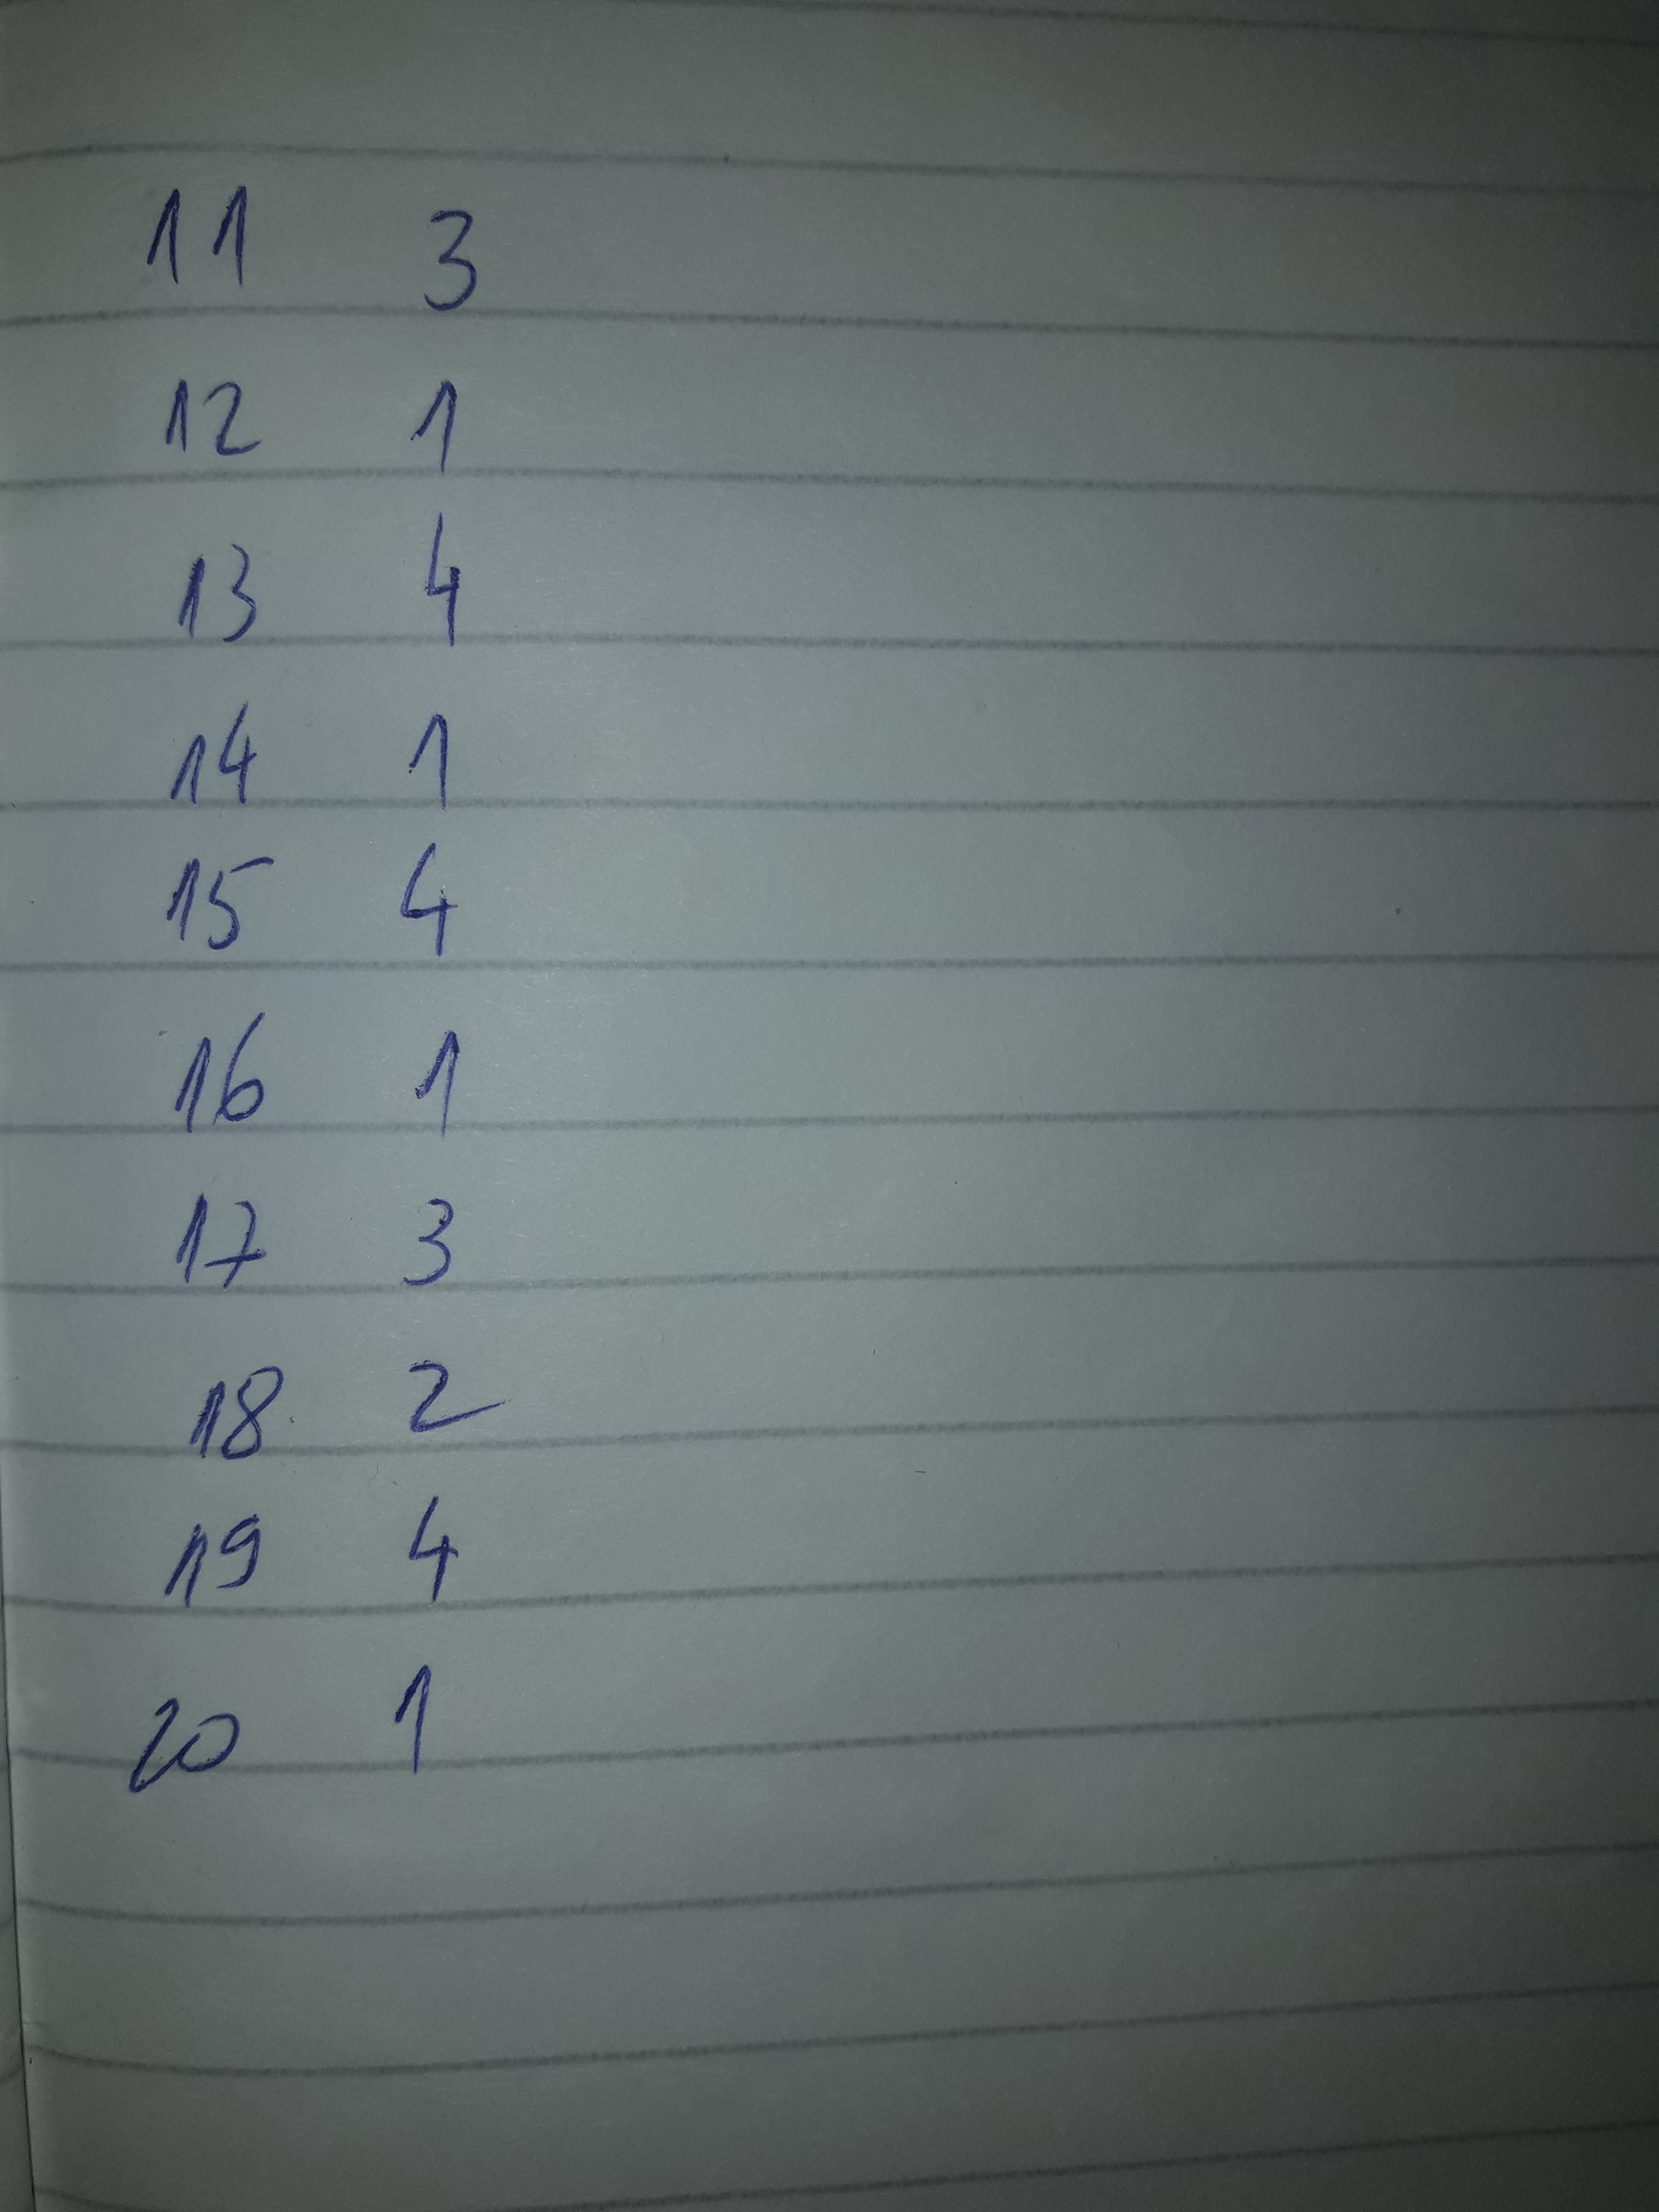 11 3
12 1
13 4
14 1
15 4
16 1
17 3
18 2
19 4
20 1